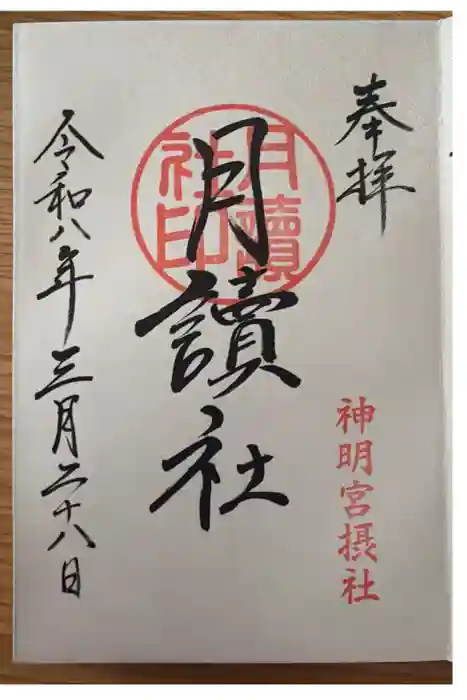 奉拝
神明宮摂社
月讀社
月讀
社印
令和八年三月二十八日